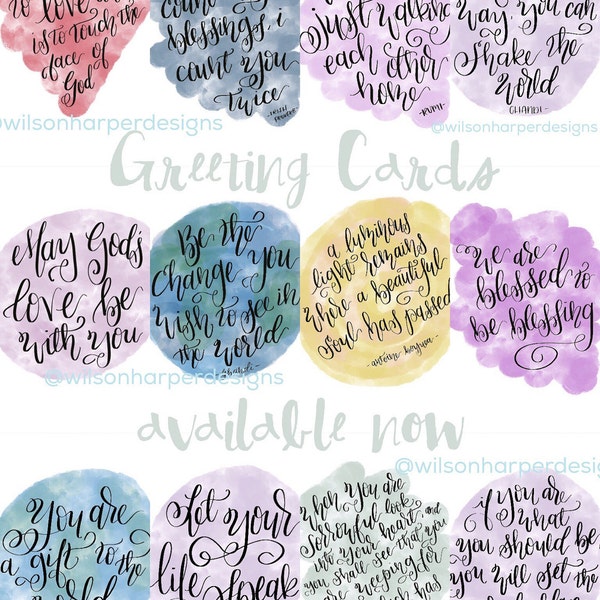 to love an
is to touch the
face of
God
count
blessings, i
count you
Twice
- IRISH PROVERB
just walking
each other
home
- RUMI-
way, you can
Shake the
World
GHANDI-
@wilsonharperdesigns
@wilsonharperdesigns
Greeting Cards
May God's
love be
with you
Be the
change you
wish to see in
the world
- Ghandi-
a luminous
light remains
where a beautiful
soul has passed
- antoine bovyuva -
we are
blessed to
be blessing
@wilsonharperdesigns
available now
@wilsonharperdesigns
You are
a gift to the
world
Let your
life speak
When you are
sorrowful look
into your heart, and
you shall see that you
are weeping for
has
if you are
what
you should be
you will set the